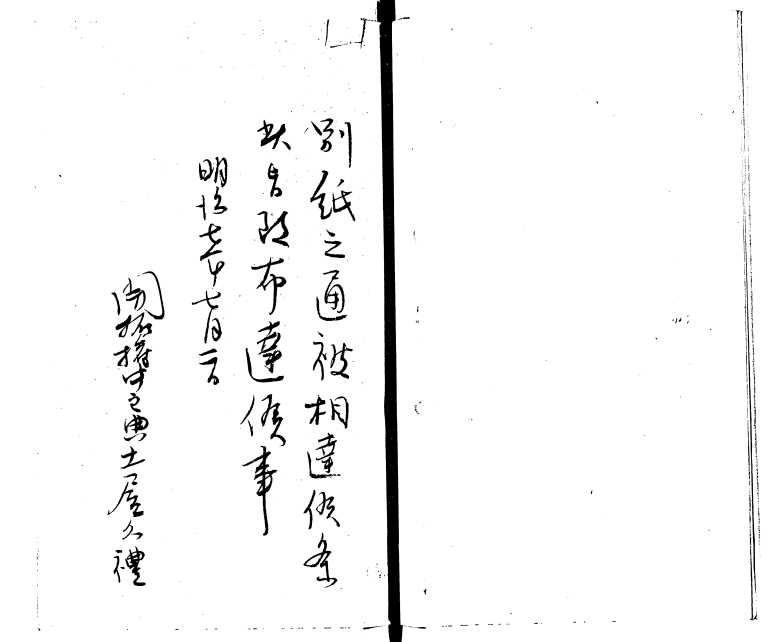 別紙之通被相達候条
此旨改布達候事
明治七年七月二日
開拓権中主典土屋久禮